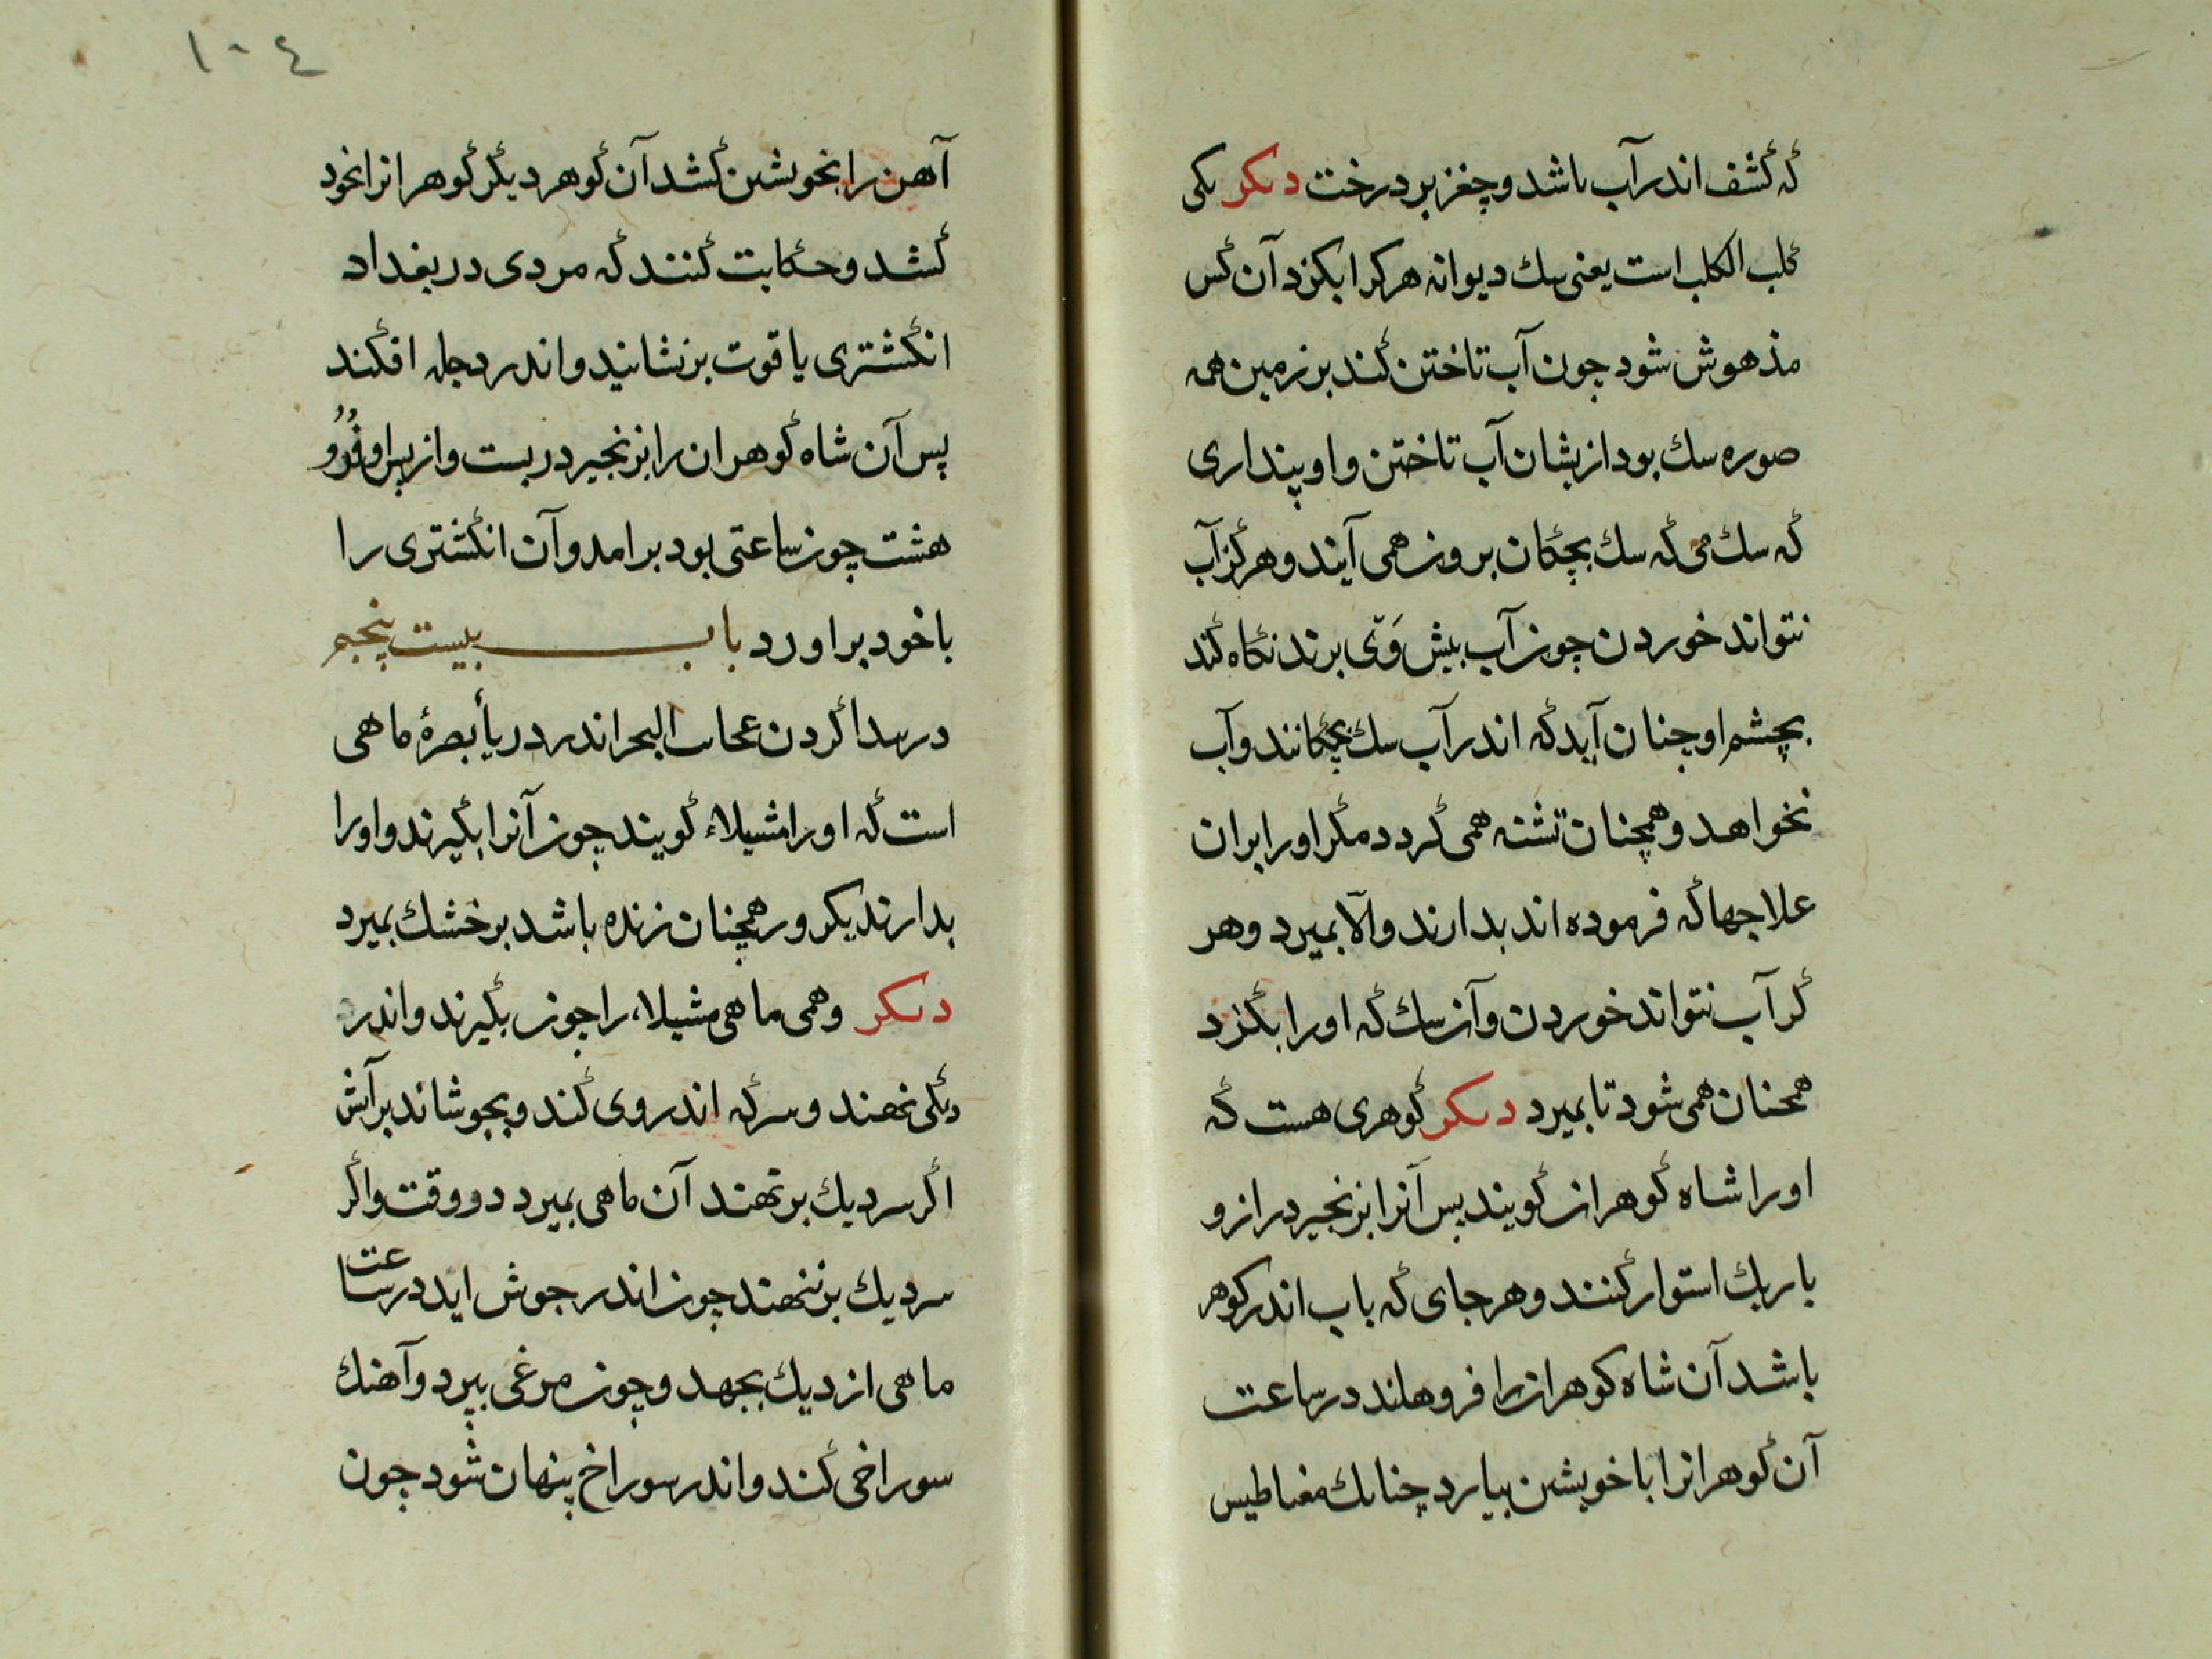 که کشف اندر آب باشد و چغز بر درخت دیکر یکی
کلب الکلب است یعنی سك دیوانه هرکرا بکزد آن کس
مذهوش شود چون آب تاختن کند بر زمین همه
صوره سك بود ازیشان آب تاختن و او پنداری
که سك می که سك بچکان برون همی آیند و هرکز آب
نتواند خوردن چون آب پیش وَی برند نکاه کند
بچشم او چنان آید که اندر آب سك بچکانند و آب
نخواهد و همچنان تشنه همی کردد مکر او را بران
علاجها که فرموده اند بدارند و الّا بمیرد و هر
کر آب نتواند خوردن و آن سك که او را بکزد
همچنان همی شود تا بمیرد دیکر کوهری هست که
اورا شاه کوهران کویند پس آنرا بزنجیر دراز و
باریك استوار کنند و هر جای که باب اندر کوهر
باشد آن شاه کوهران را فرو هلند در ساعت
آن کوهرانرا با خویشن بیارد چنانك مغناطیس
١٠٤
آهن را بخویشن کشد آن کوهر دیکر کوهرانرا بخود
کشد و حکایت کنند که مردی در بغداد
انکشتری یاقوت بزنشانید و اندر دجله افکند
پس آن شاه کوهران را بزنجیر در بست و از پس او فُرُو
هشت چون ساعتی بود برامد و آن انکشتری را
با خود براورد باب بیست پنجم
در پیدا کردن عجایب البحر اندر دریأ بصرهٔ ماهی
است که او را مشیلاء کویند چون آنرا بکیرند و او را
بدارند یکروز همچنان زنده باشد بر خشك بمیرد
دیکر وهمی ماهی مشیلاء را چون بکیرند و اندر
دیکی نهند و سرکه اندر وی کند و بجوشاند بر آتش
اکر سر دیك بر نهند آن ماهی بمیرد دو وقت و اکر
سر دیك بر ننهند چون اندر جوش اید در ساعت
ماهی از دیك بجهد و چون مرغی بپرد و آهنك
سوراخی کند و اندر سوراخ پنهان شود چون